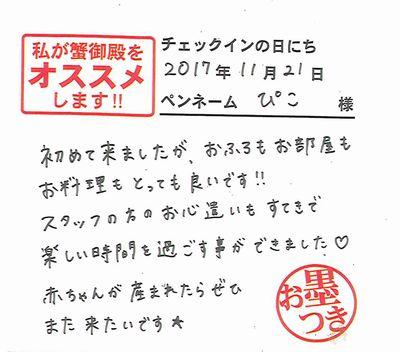 私が蟹御殿を
オススメ
します!!
チェックインの日にち
2017年11月21日
ペンネーム ぴこ 様
初めて来ましたが、おふろもお部屋も
お料理もとっても良いです!!
スタッフの方のお心遣いもすてきで
楽しい時間を過ごす事ができました♡
赤ちゃんが産まれたらぜひ
また来たいです★
お墨つき